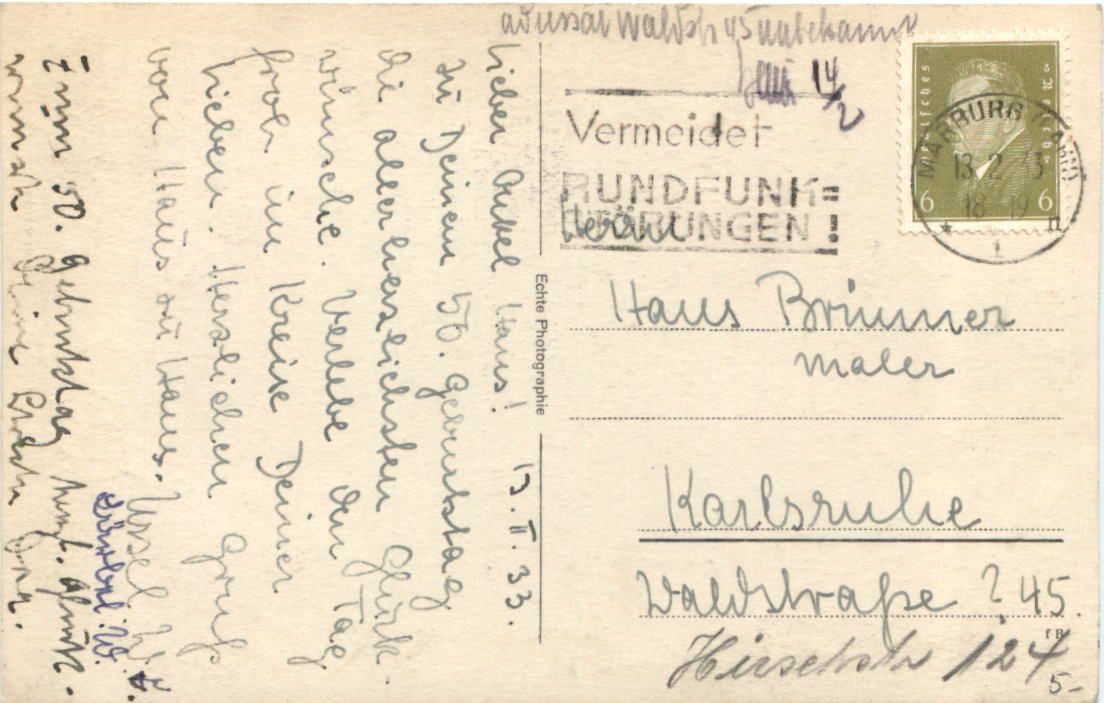 Lieber Onkel Hans! 13. II. 33.
Zu Deinem 50. Geburtstag
die allerherzlichsten Glück-
wünsche. Verlebe den Tag
froh im Kreise Deiner
Lieben. Herzlichen Gruß
von Haus zu Haus. Ursel W.
Bärbel. W.
Zum 50. Geburtstag herzl. Glückw.
wünscht Deine
Echte Photographie
Waldstr 45 unbekannt
14/2
Vermeidet
RUNDFUNK=
STÖRUNGEN!
Deutsches Reich
6 6
MARBURG (LAHN)
13.2.33
18-19
1
Hans Brünner
Maler
Karlsruhe
Waldstraße ? 45.
Hirschstr 124
5-